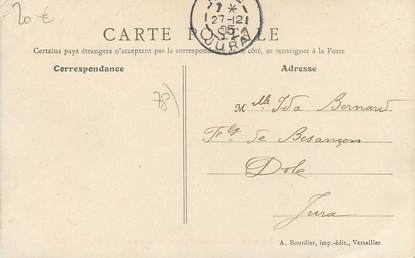 20 €
7 *
27-12
05
JURA
CARTE POSTALE
Certains pays étrangers n'acceptent pas la correspondance de ce côté, se renseigner à la Poste
Correspondance
Adresse
78)
Mlle Ida Bernard
Fg de Besançon
Dole
Jura
A. Bourdier, imp.-édit., Versailles